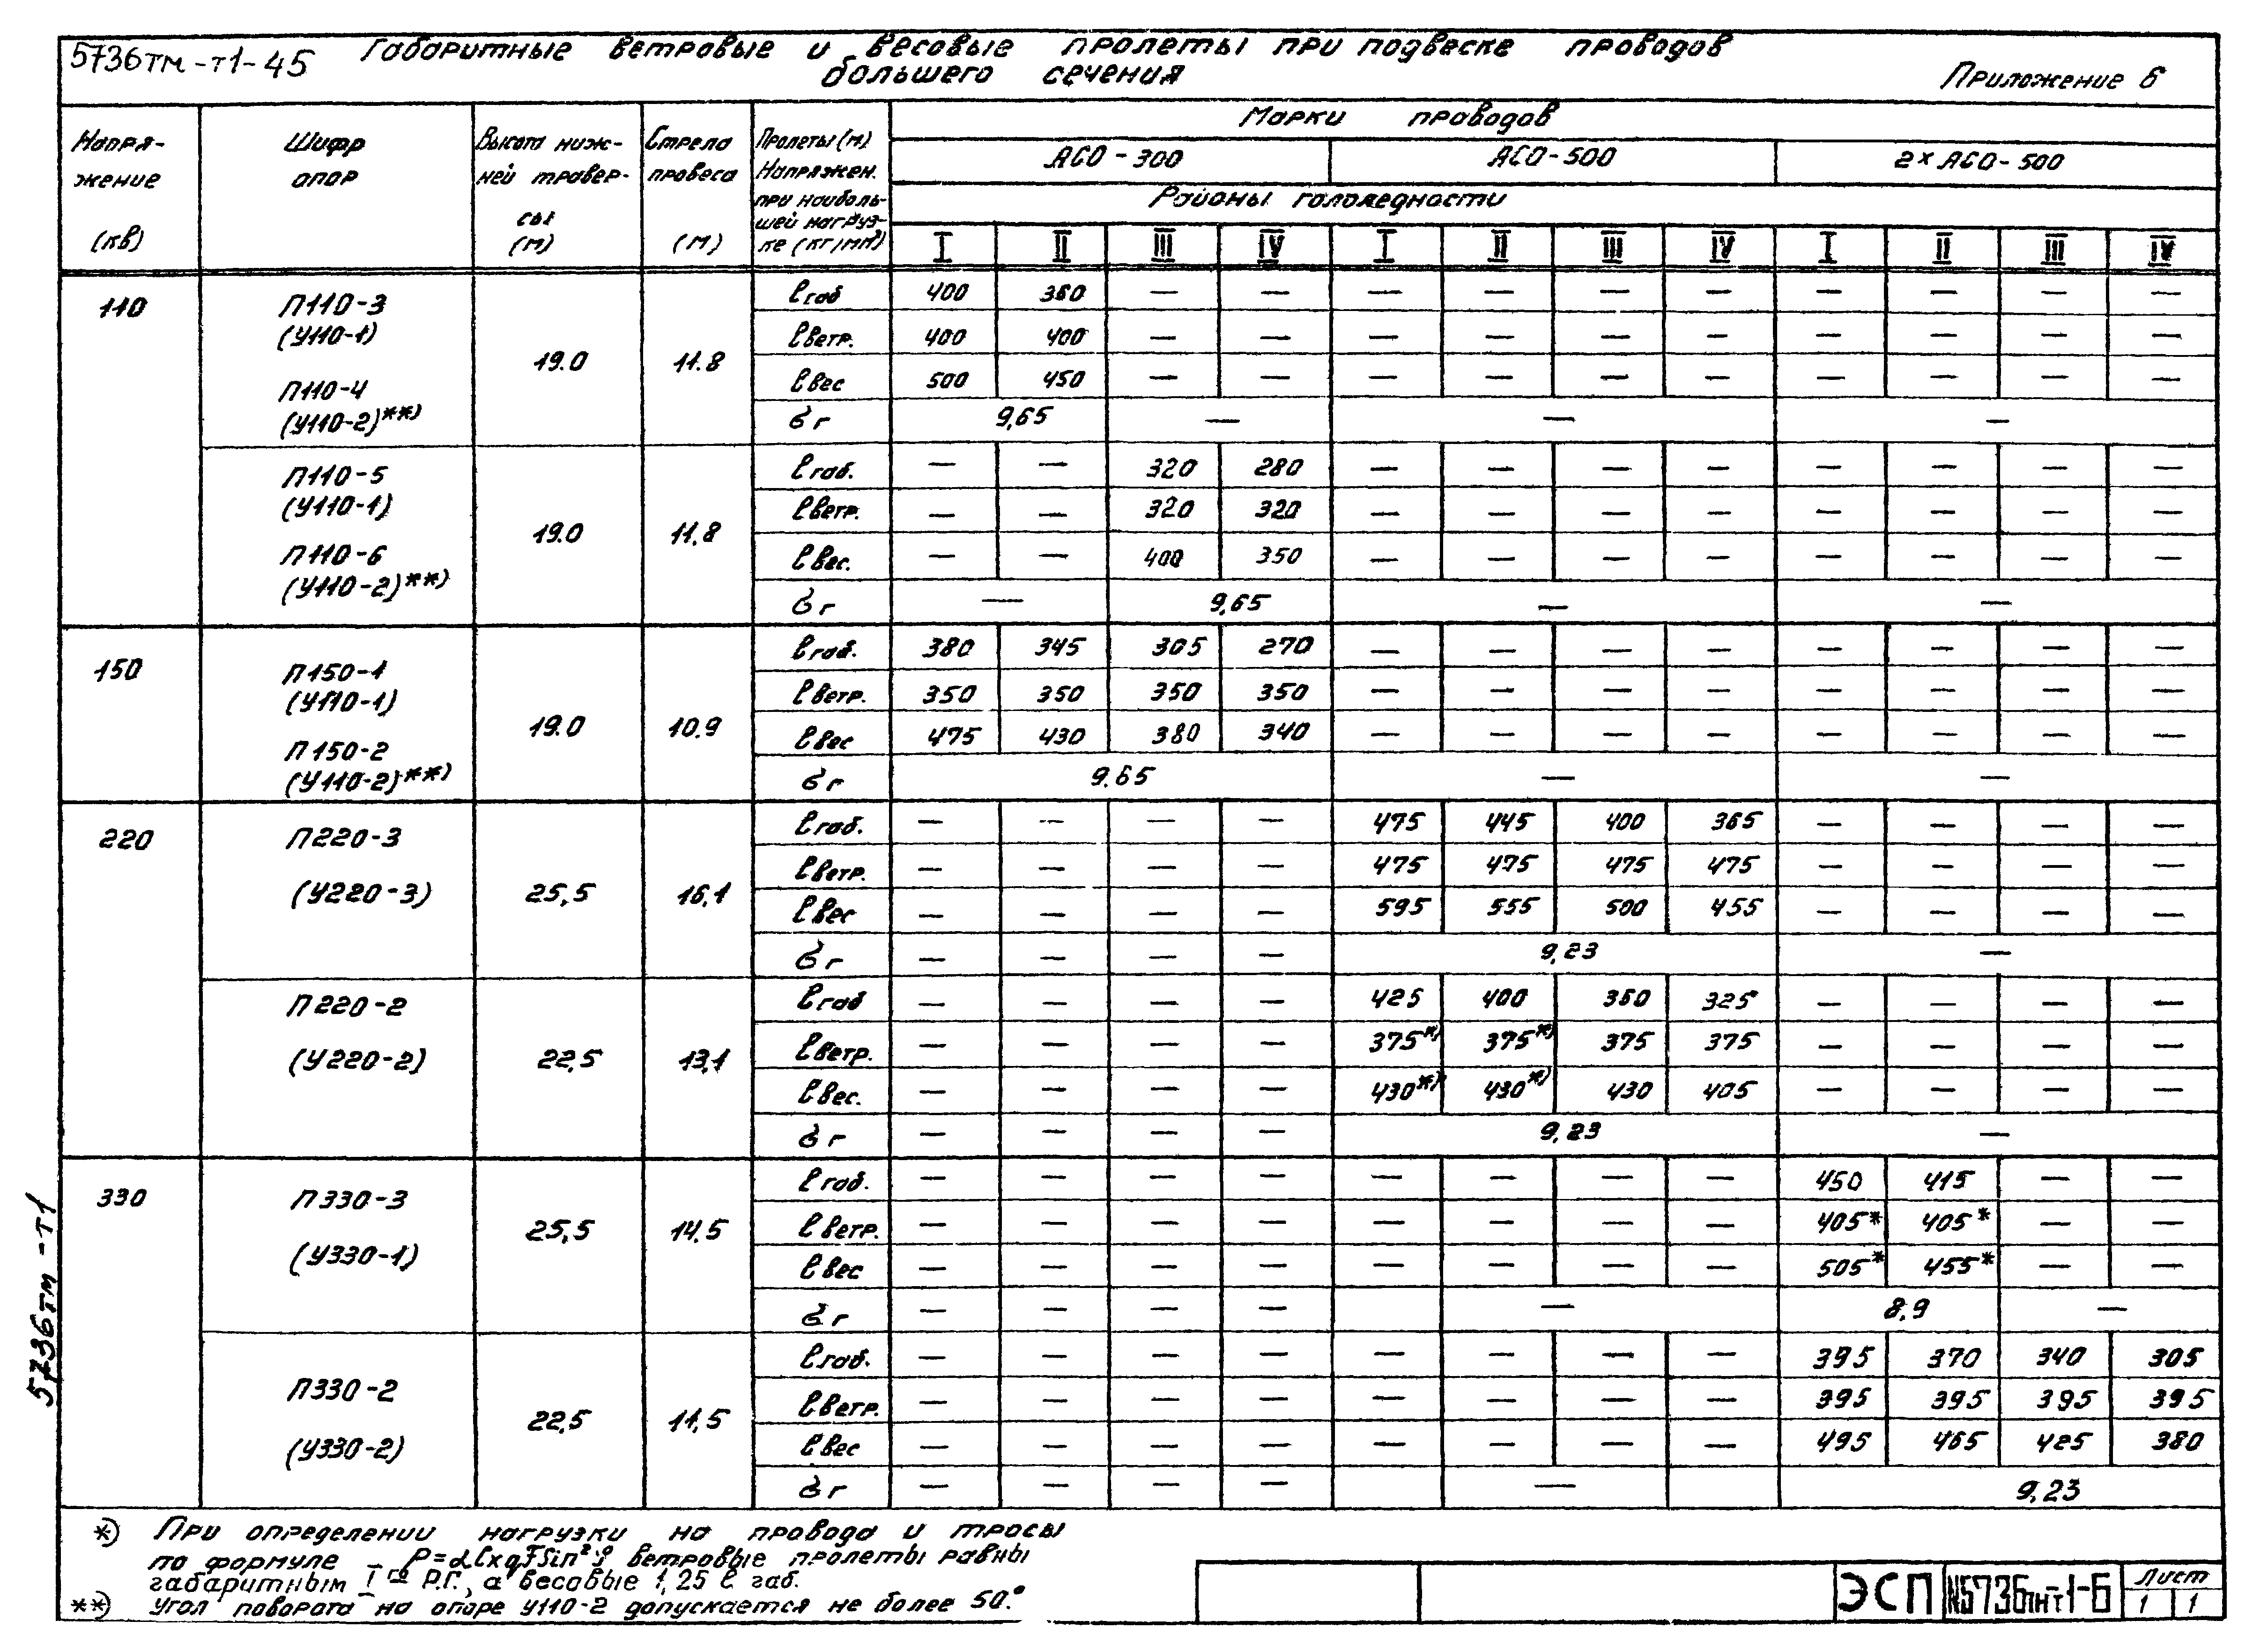 5736тм-т1-45 Габаритные ветровые и весовые пролеты при подвеске проводов
большего сечения
Приложение 6
Напря-
жение
(кв)
Шифр
опор
Высота ниж-
ней травер-
сы
(м)
Стрела
провеса
(м)
Пролеты (м)
Напряжен.
при наиболь-
шей нагруз-
ке (кг/мм²)
Марки проводов
АСО-300 АСО-500 2×АСО-500
Районы гололедности
I II III IV I II III IV I II III IV
110
П110-3
(У110-1)
П110-4
(У110-2)**)
19.0 11.8
ℓгаб 400 360 — — — — — — — — — —
ℓветр. 400 400 — — — — — — — — — —
ℓвес 500 450 — — — — — — — — — —
σг 9,65 — — —
П110-5
(У110-1)
П110-6
(У110-2)**)
19.0 11,8
ℓгаб. — — 320 280 — — — — — — — —
ℓветр. — — 320 320 — — — — — — — —
ℓвес. — — 400 350 — — — — — — — —
σг — 9,65 — —
150
П150-1
(У110-1)
П150-2
(У110-2)**)
19.0 10.9
ℓгаб. 380 345 305 270 — — — — — — — —
ℓветр. 350 350 350 350 — — — — — — — —
ℓвес 475 430 380 340 — — — — — — — —
σг 9.65 — —
220
П220-3
(У220-3)
25,5 16,1
ℓгаб. — — — — 475 445 400 365 — — — —
ℓветр. — — — — 475 475 475 475 — — — —
ℓвес — — — — 595 555 500 455 — — — —
σг — — — — 9,23 —
П220-2
(У220-2)
22,5 13,1
ℓгаб — — — — 425 400 360 325 — — — —
ℓветр. — — — — 375*) 375*) 375 375 — — — —
ℓвес. — — — — 430*) 430*) 430 405 — — — —
σг — — — — 9,23 —
330
П330-3
(У330-1)
25,5 14,5
ℓгаб. — — — — — — — — 450 415 — —
ℓветр. — — — — — — — — 405* 405* — —
ℓвес — — — — — — — — 505* 455* — —
σг — — — — — 8,9 —
П330-2
(У330-2)
22,5 11,5
ℓгаб. — — — — — — — — 395 370 340 305
ℓветр. — — — — — — — — 395 395 395 395
ℓвес — — — — — — — — 495 465 425 380
σг — — — — — 9,23
*) При определении нагрузки на провода и тросы
по формуле P=αCxqFSin²φ ветровые пролеты равны
габаритным I го Р.Г., а весовые 1,25 ℓ габ.
**) Угол поворота на опоре У110-2 допускается не более 50.°
ЭСП
Лист
1 1
5736тм-т1